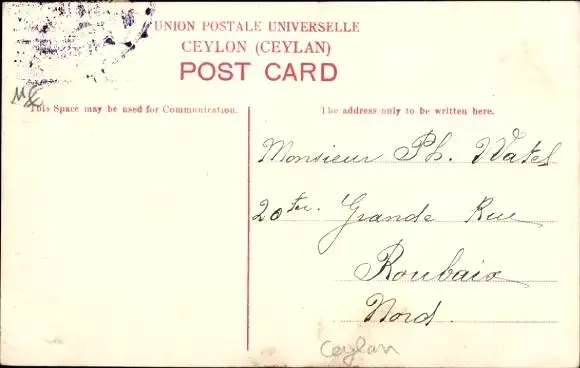 UNION POSTALE UNIVERSELLE
CEYLON (CEYLAN)
POST CARD
This Space may be used for Communication.
The address only to be written here.
Monsieur Ph. Watel
20 ter. Grande Rue
Roubaix
Nord.
Ceylan